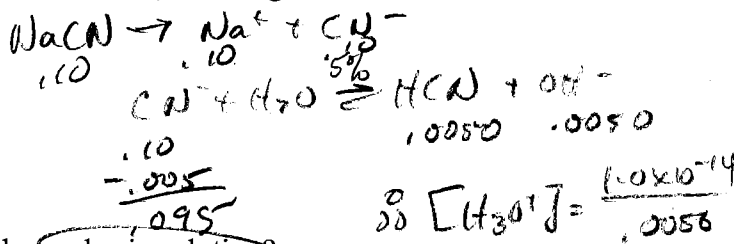 NaCN → Na⁺ + CN⁻
.10 .10 .10
5%
CN⁻ + H₂O ⇌ HCN + OH⁻
.0050 .0050
.10
-.005
.095
∴ [H₃O⁺] = 1.0×10⁻¹⁴ / .0050